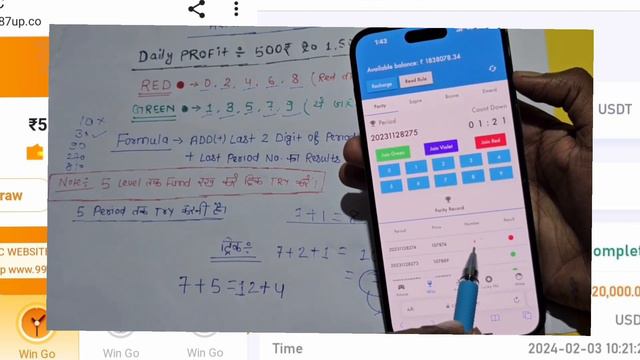 87up.co
₹5
raw
C WEBSITE
p www.99
Win Go
Win Go
Win Go
Daily PROFIT ÷ 500₹ 20 1.5
RED → 0, 2, 4, 6, 8 (Red
GREEN → 1, 3, 5, 7, 9
Formula → ADD(+) Last 2 Digit of Period
+ Last Period No. का Results
Note: 5 Level तक Fund रख कर ट्रिक TRY करें।
5 Period तक TRY करनी है।
1+1 =
ट्रिक ÷ 7+2+1 =
7+5=12+4
1:43
Available balance: ₹ 1838078.34
Recharge
Read Rule
Parity
Sapre
Bcone
Emerd
Period
Count Down
20231128275
0 1 : 2 1
Join Green
Join Violet
Join Red
0 1 2 3 4
5 6 7 8 9
Parity Record
Period
Price
Number
Result
20231128274
107874
20231128273
107869
Win
USDT
omplet
20,000.0
USD
Time
2024-02-03 10:21:2